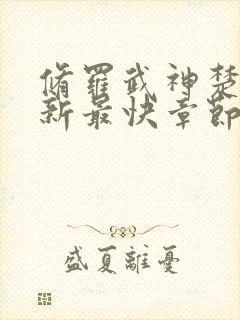 脩羅武神楚
新最快章節
盛夏離憂